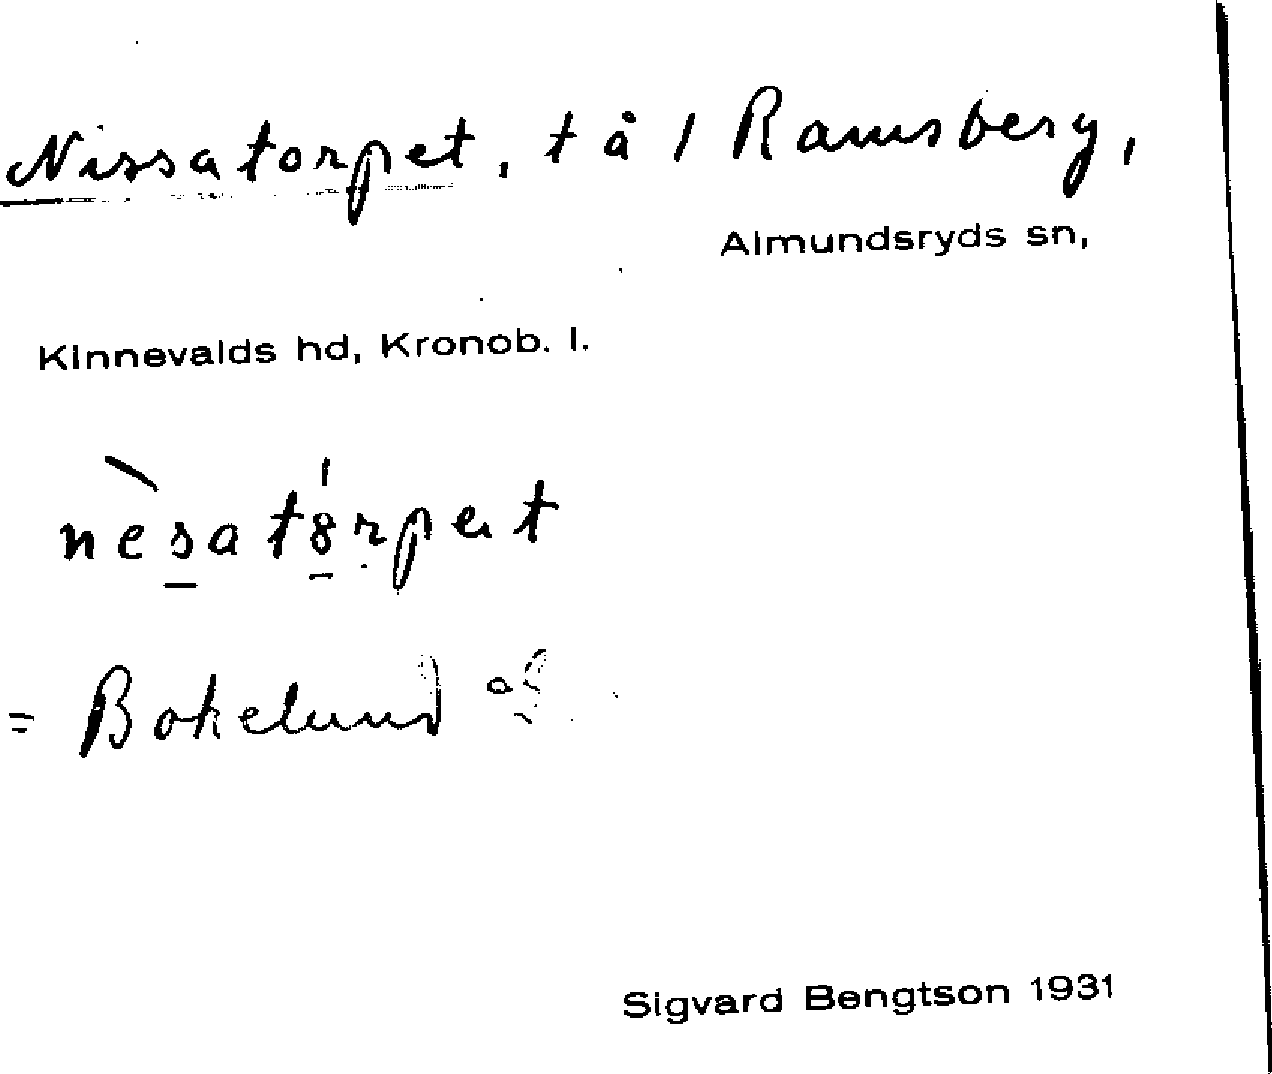 Nissatorpet, tå 1 Ramsberg,
Almundsryds sn,
Kinnevalds hd, Kronob. l.
nèsatȣ́rpət
= Bokelund
Sigvard Bengtson 1931